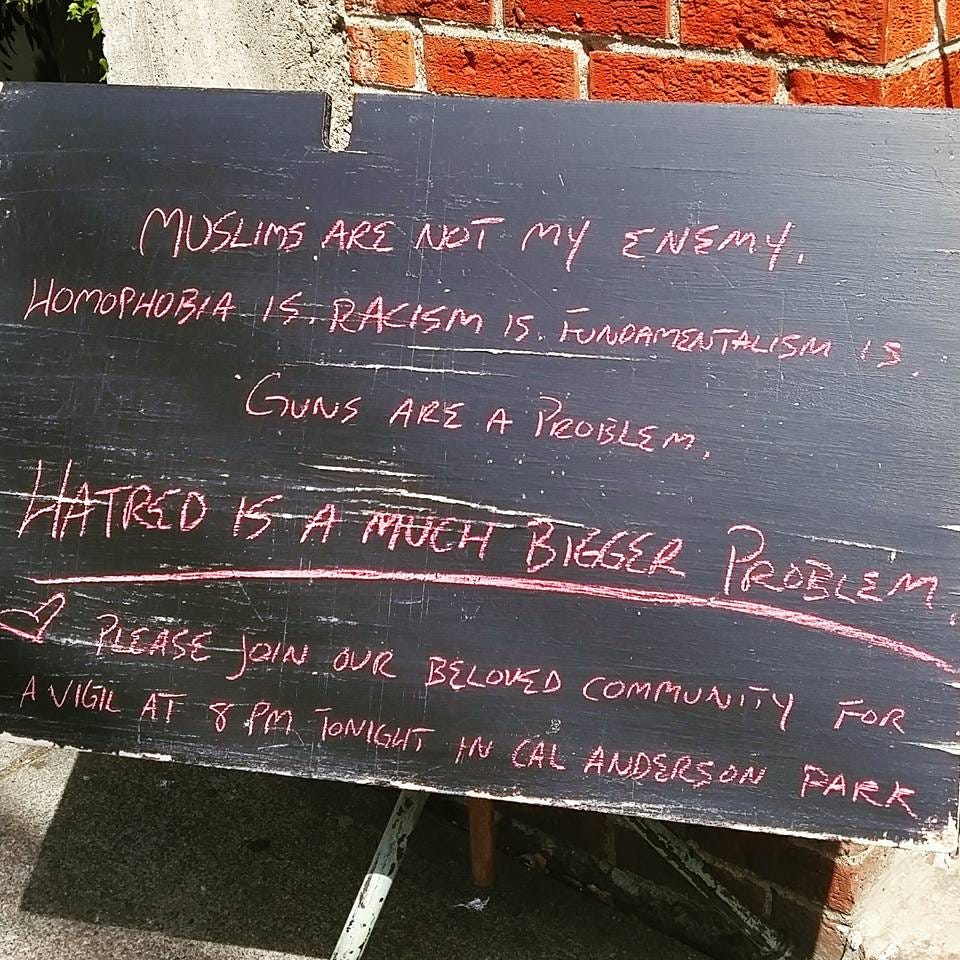 MUSLIMS ARE NOT MY ENEMY.
HOMOPHOBIA IS. RACISM IS. FUNDAMENTALISM IS.
GUNS ARE A PROBLEM.
HATRED IS A MUCH BIGGER PROBLEM.
PLEASE JOIN OUR BELOVED COMMUNITY FOR
A VIGIL AT 8 PM TONIGHT IN CAL ANDERSON PARK